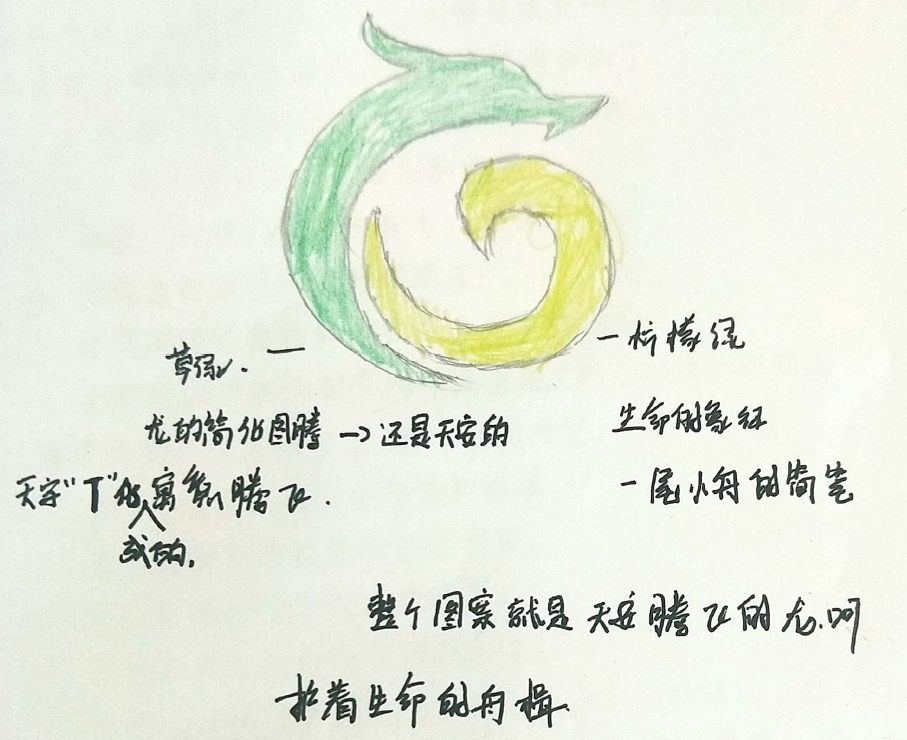 草绿.
柠檬绿
龙的简化图腾→还是天安的
生命的象征
天字"T"化成的,寓意腾飞.
一尾小舟的简笔
整个图案就是天安腾飞的龙,呵
护着生命的舟楫.